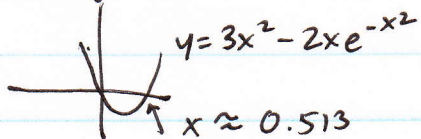 y = 3x² - 2xe^{-x²}
x ≈ 0.513